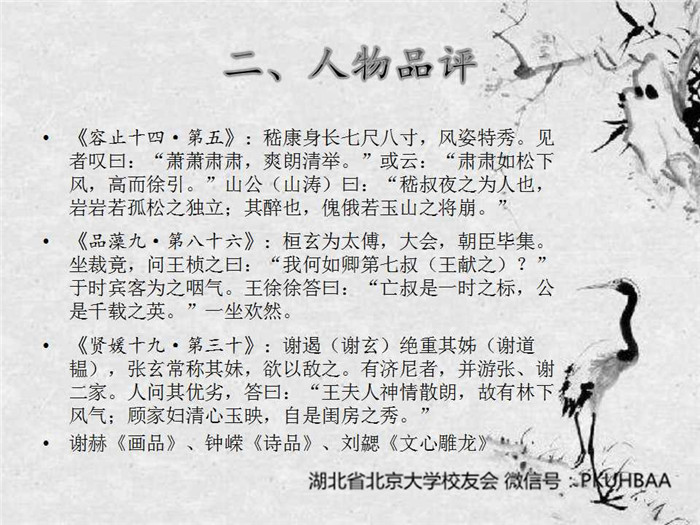 二、人物品评
• 《容止十四·第五》：嵇康身长七尺八寸，风姿特秀。见
者叹曰：“萧萧肃肃，爽朗清举。”或云：“肃肃如松下
风，高而徐引。”山公（山涛）曰：“嵇叔夜之为人也，
岩岩若孤松之独立；其醉也，傀俄若玉山之将崩。”
• 《品藻九·第八十六》：桓玄为太傅，大会，朝臣毕集。
坐裁竟，问王桢之曰：“我何如卿第七叔（王献之）？”
于时宾客为之咽气。王徐徐答曰：“亡叔是一时之标，公
是千载之英。”一坐欢然。
• 《贤媛十九·第三十》：谢遏（谢玄）绝重其姊（谢道
韫），张玄常称其妹，欲以敌之。有济尼者，并游张、谢
二家。人问其优劣，答曰：“王夫人神情散朗，故有林下
风气；顾家妇清心玉映，自是闺房之秀。”
• 谢赫《画品》、钟嵘《诗品》、刘勰《文心雕龙》
湖北省北京大学校友会 微信号：PKUHBAA